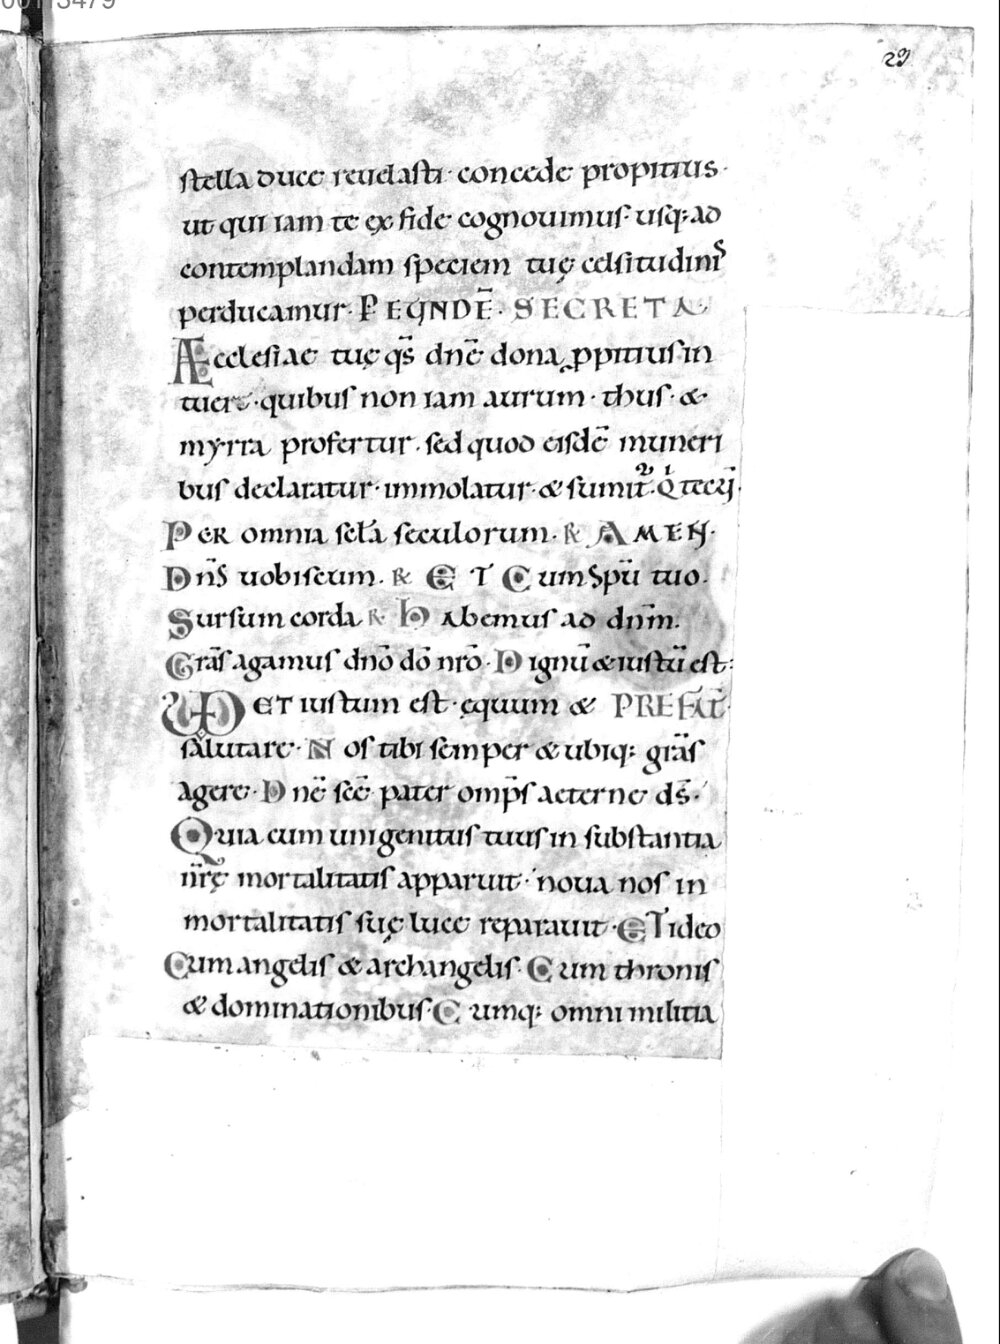 00113479
29
stella duce reuelasti· concede propitius·
ut qui iam te ex fide cognouimus· usq; ad
contemplandam speciem tuę celsitudinis
perducamur· P EUNDĒ· SECRETA
Æcclesiae tuę qs̄ dn̄e dona ꝓpitius in
tuere· quibus non iam aurum· thus· &
myrra profertur· sed quod eisdē muneri
bus declaratur· immolatur· & sumit᷑· Q̇ tecū·
PER omnia sc̄la seculorum· ℟ AMEN·
Dn̄s uobiscum· ℟ ET Cum sp̄u tuo·
Sursum corda ℟ Habemus ad dn̄m·
Grās agamus dn̄o dō nr̄o· Dignū & iustū est:
VD ET iustum est· ęquum & PREFAT̄·
salutare· Nos tibi semper & ubiq; grās
agere· Dn̄e sc̄e pater omp̄s aeterne ds̄·
Quia cum unigenitus tuus in substantia
nr̄ę mortalitatis apparuit· noua nos in
mortalitatis suę luce reparauit· ET ideo
Cum angelis & archangelis· Cum thronis
& dominationibus· Cumq; omni militia